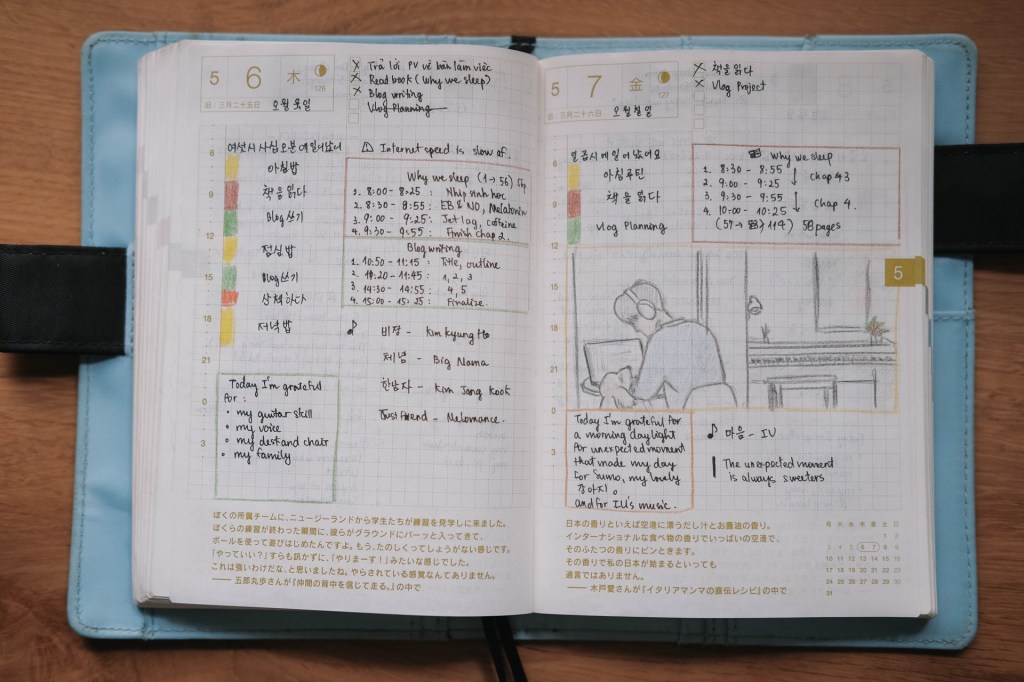 5 6 木
126
旧:三月二十五日 오월 육일
Trả lời PV về bàn làm việc
Read book (Why we sleep)
Blog writing
Vlog Planning
6
여섯시 사십오분에 일어났어
아침밥
9
책을 읽다
Blog 쓰기
12
점심밥
15
Blog 쓰기
산책하다
18
저녁밥
21
0
3
⚠ Internet speed is slow af.
Why we sleep (1→56)
1. 8:00 - 8:25 : Nhịp sinh học
2. 8:30 - 8:55 : EB & NO, Melatonin
3. 9:00 - 9:25 : Jet lag, caffeine
4. 9:30 - 9:55 : Finish chap 2.
Blog writing
1. 10:50 - 11:15 : Title, outline
2. 11:20 - 11:45 : 1, 2, 3
3. 14:30 - 14:55 : 4, 5
4. 15:00 - 15:25 : Finalize.
♪ 비장 - Kim Kyung Ho
체념 - Big Mama
한남자 - Kim Jong Kook
Just Friend - Melomance.
Today I'm grateful
for :
• my guitar skill
• my voice
• my desk and chair
• my family
ぼくの所属チームに、ニュージーランドから学生たちが練習を見学しに来ました。
ぼくらの練習が終わった瞬間に、彼らがグラウンドにバーッと入ってきて、
ボールを使って遊びはじめたんですよ。もう、たのしくってしょうがない感じです。
「やっていい?」すらも訊かずに、「やりまーす!」みたいな感じでした。
これは強いわけだな、と思いましたね。やらされている感覚なんてありません。
—— 五郎丸歩さんが『仲間の背中を信じて走る。』の中で
5 7 金
127
旧:三月二十六日 오월 칠일
책을 읽다
Vlog Project
6
일곱시에 일어났어요
아침루틴
9
책을 읽다
Vlog Planning
12
15
18
21
0
3
Why we sleep
1. 8:30 - 8:55
2. 9:00 - 9:25 Chap 43
3. 9:30 - 9:55
4. 10:00 - 10:25 Chap 4.
(57→ 114) 58 pages
5
Today I'm grateful for
a morning daylight
for unexpected moment
that made my day
for Sumo, my lovely
강아지.
and for IU's music.
♪ 마음 - IU
The unexpected moment
is always sweeters
日本の香りといえば空港に漂うだし汁とお醤油の香り。
インターナショナルな食べ物の香りでいっぱいの空港で、
そのふたつの香りにピンときます。
その香りで私の日本が始まるといっても
過言ではありません。
—— 木戸愛さんが『イタリアマンマの直伝レシピ』の中で
月 火 水 木 金 土 日
1 2
3 4 5 6 7 8 9
10 11 12 13 14 15 16
17 18 19 20 21 22 23
24 25 26 27 28 29 30
31